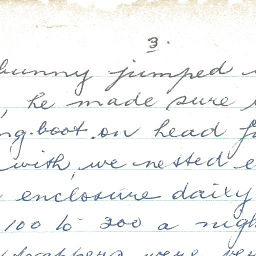 3.
bunny jumped
, he made sure
ng boot on head
with, we nested
enclosure daily
100 to 200 a nigh
trappers were